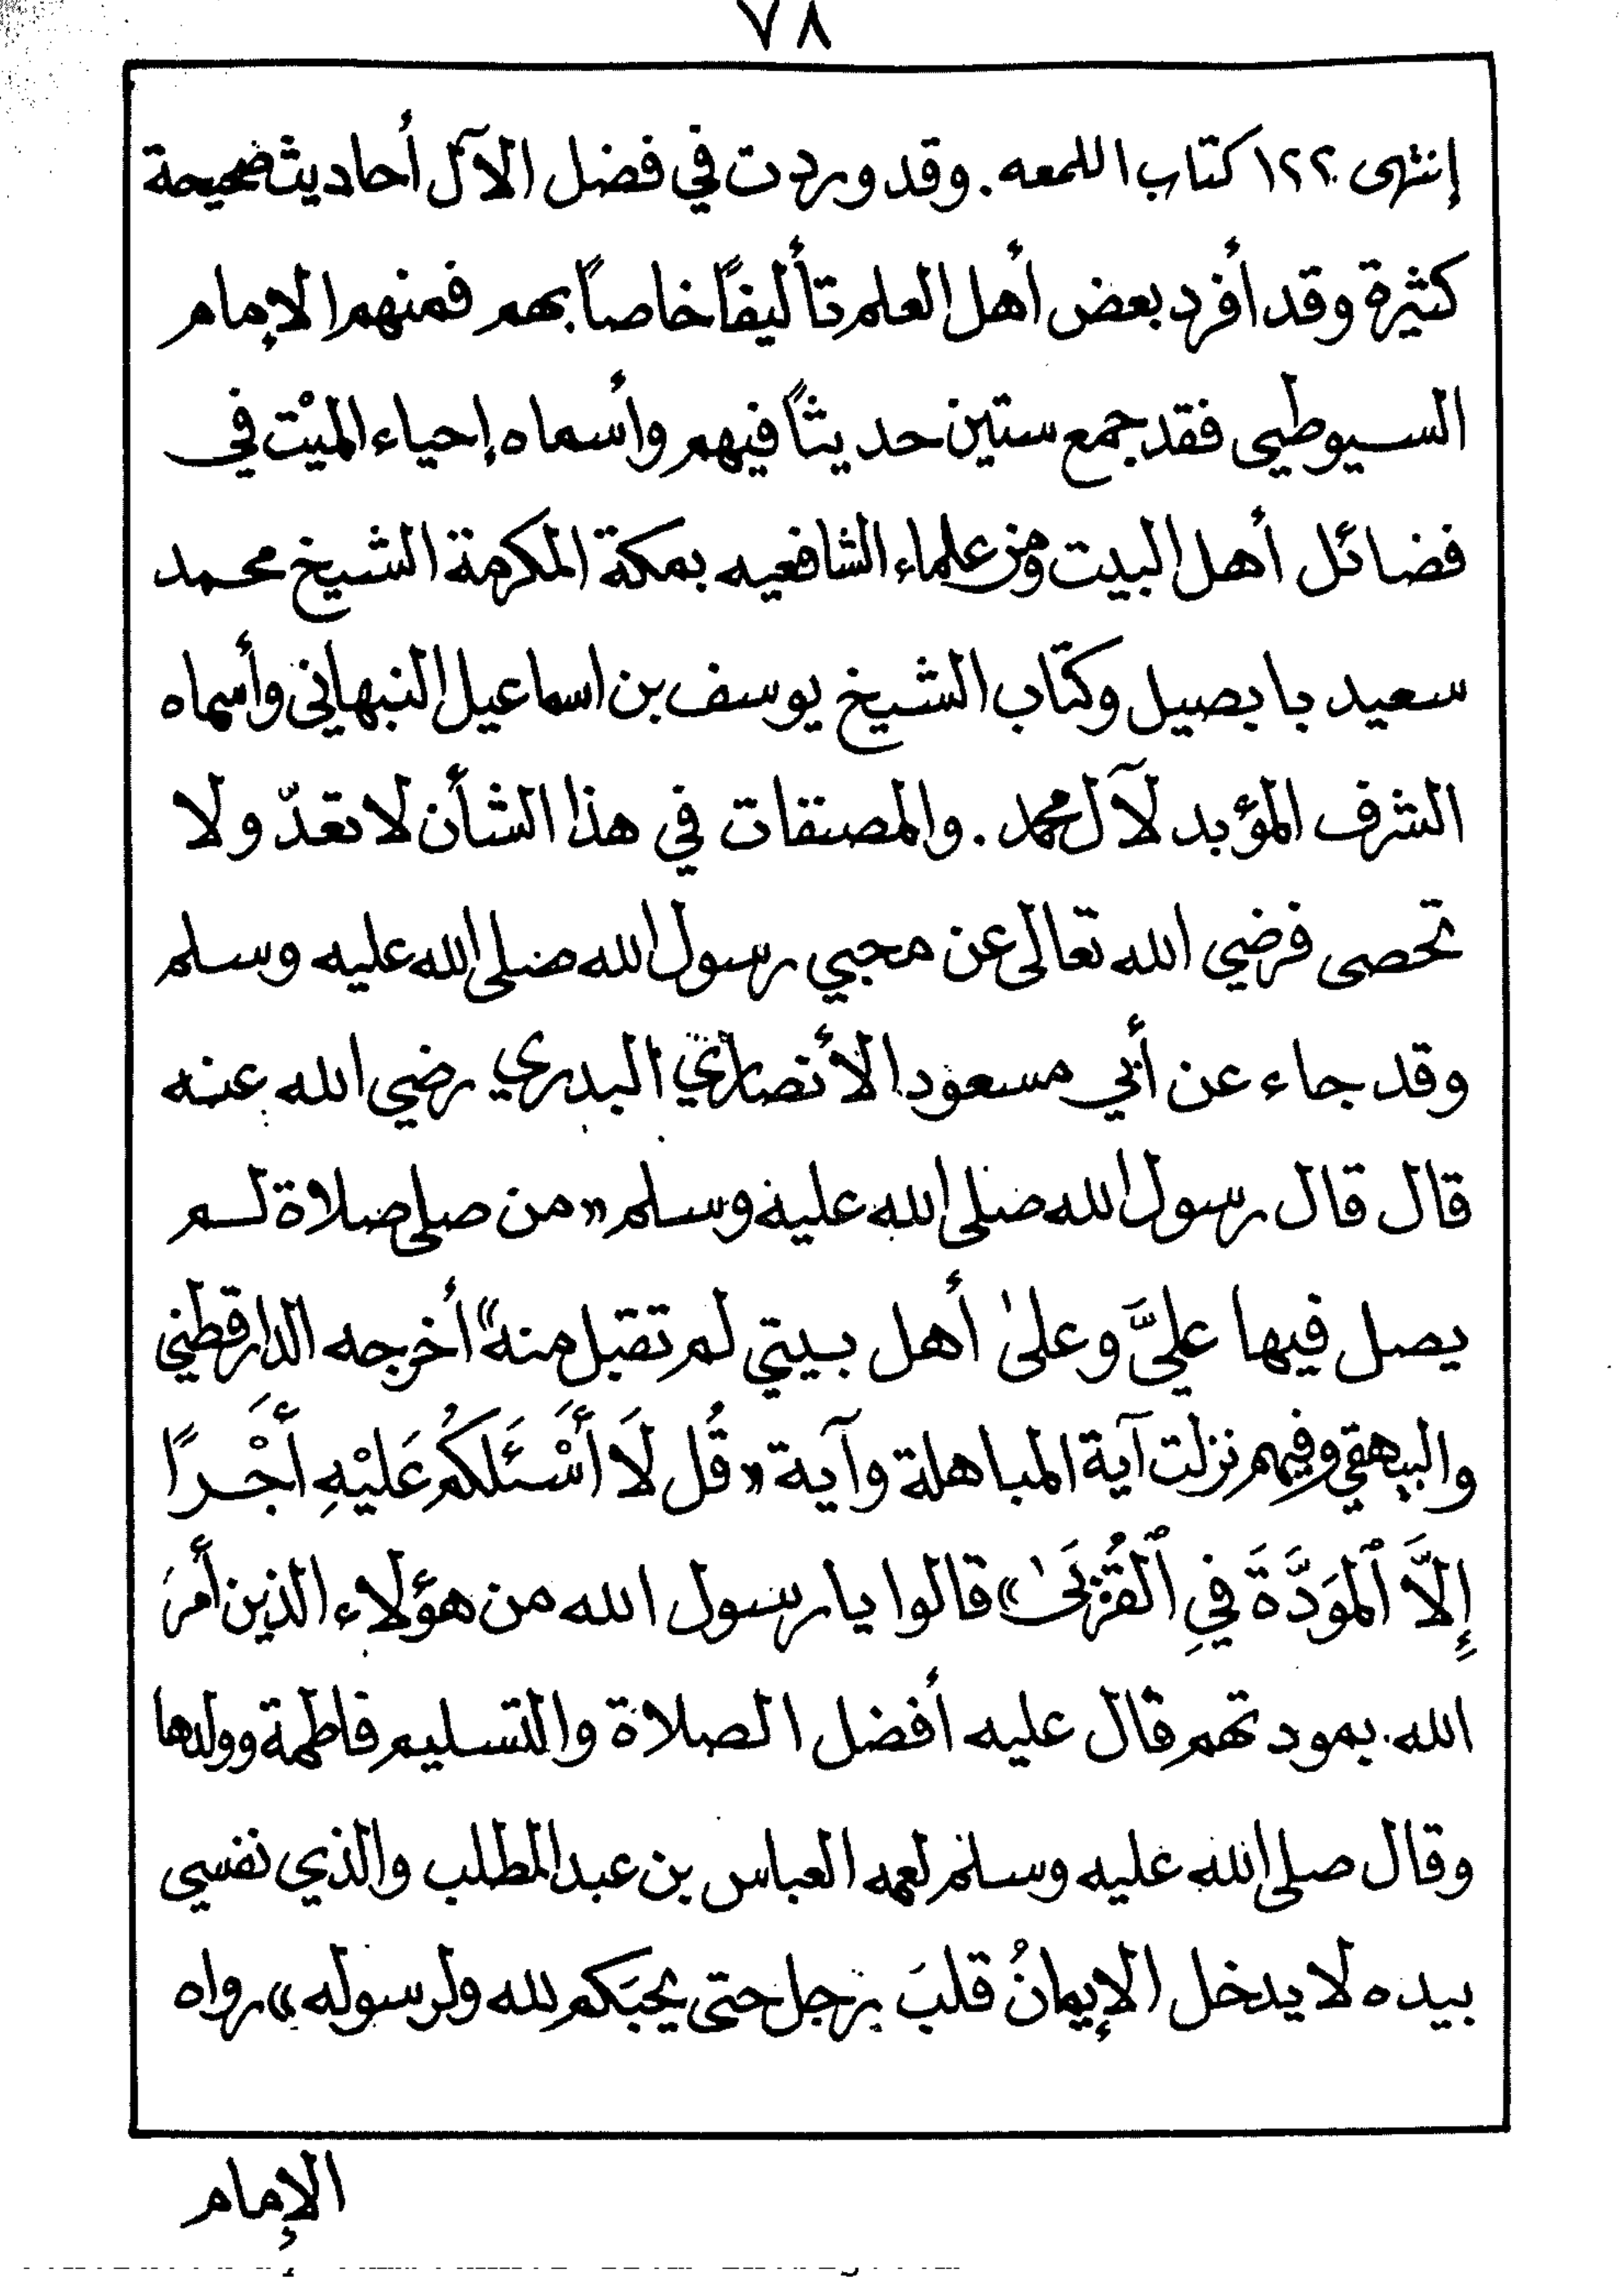 ٧٨
إنتهى ١٢٢ كتاب اللمعه . وقد وردت في فضل الآل أحاديث صحيحة
كثيرة وقد أفرد بعض أهل العلم تأليفاً خاصاً بهم فمنهم الإمام
السيوطي فقد جمع ستين حديثاً فيهم وأسماه إحياء الميْت في
فضائل أهل البيت ومن علماء الشافعيه بمكة المكرمة الشيخ محمد
سعيد بابصيل وكتاب الشيخ يوسف بن اسماعيل النبهاني وأسماه
الشرف المؤبد لآل محمد . والمصنفات في هذا الشأن لا تعدّ ولا
تحصى فرضي الله تعالى عن محبي رسول الله صلى الله عليه وسلم
وقد جاء عن أبي مسعود الأنصاري البدري رضي الله عنه
قال قال رسول الله صلى الله عليه وسلم «من صلى صلاة لم
يصل فيها عليَّ وعلىٰ أهل بيتي لم تقبل منه» أخرجه الدارقطني
والبيهقي وفيهم نزلت آية المباهلة وآية «قُل لَا أَسْئَلكُم عَلَيْهِ أَجْرًا
إِلاَّ ٱلمَوَدَّةَ فِي ٱلْقُرْبَىٰ» قالوا يا رسول الله من هؤلاء الذين أمرَ
الله بمودتهم قال عليه أفضل الصلاة والتسليم فاطمة وولدها
وقال صلى الله عليه وسلم لعمه العباس بن عبد المطلب والذي نفسي
بيده لا يدخل الإيمانُ قلبَ رجل حتى يحبَكم لله ولرسوله» رواه
الإمام